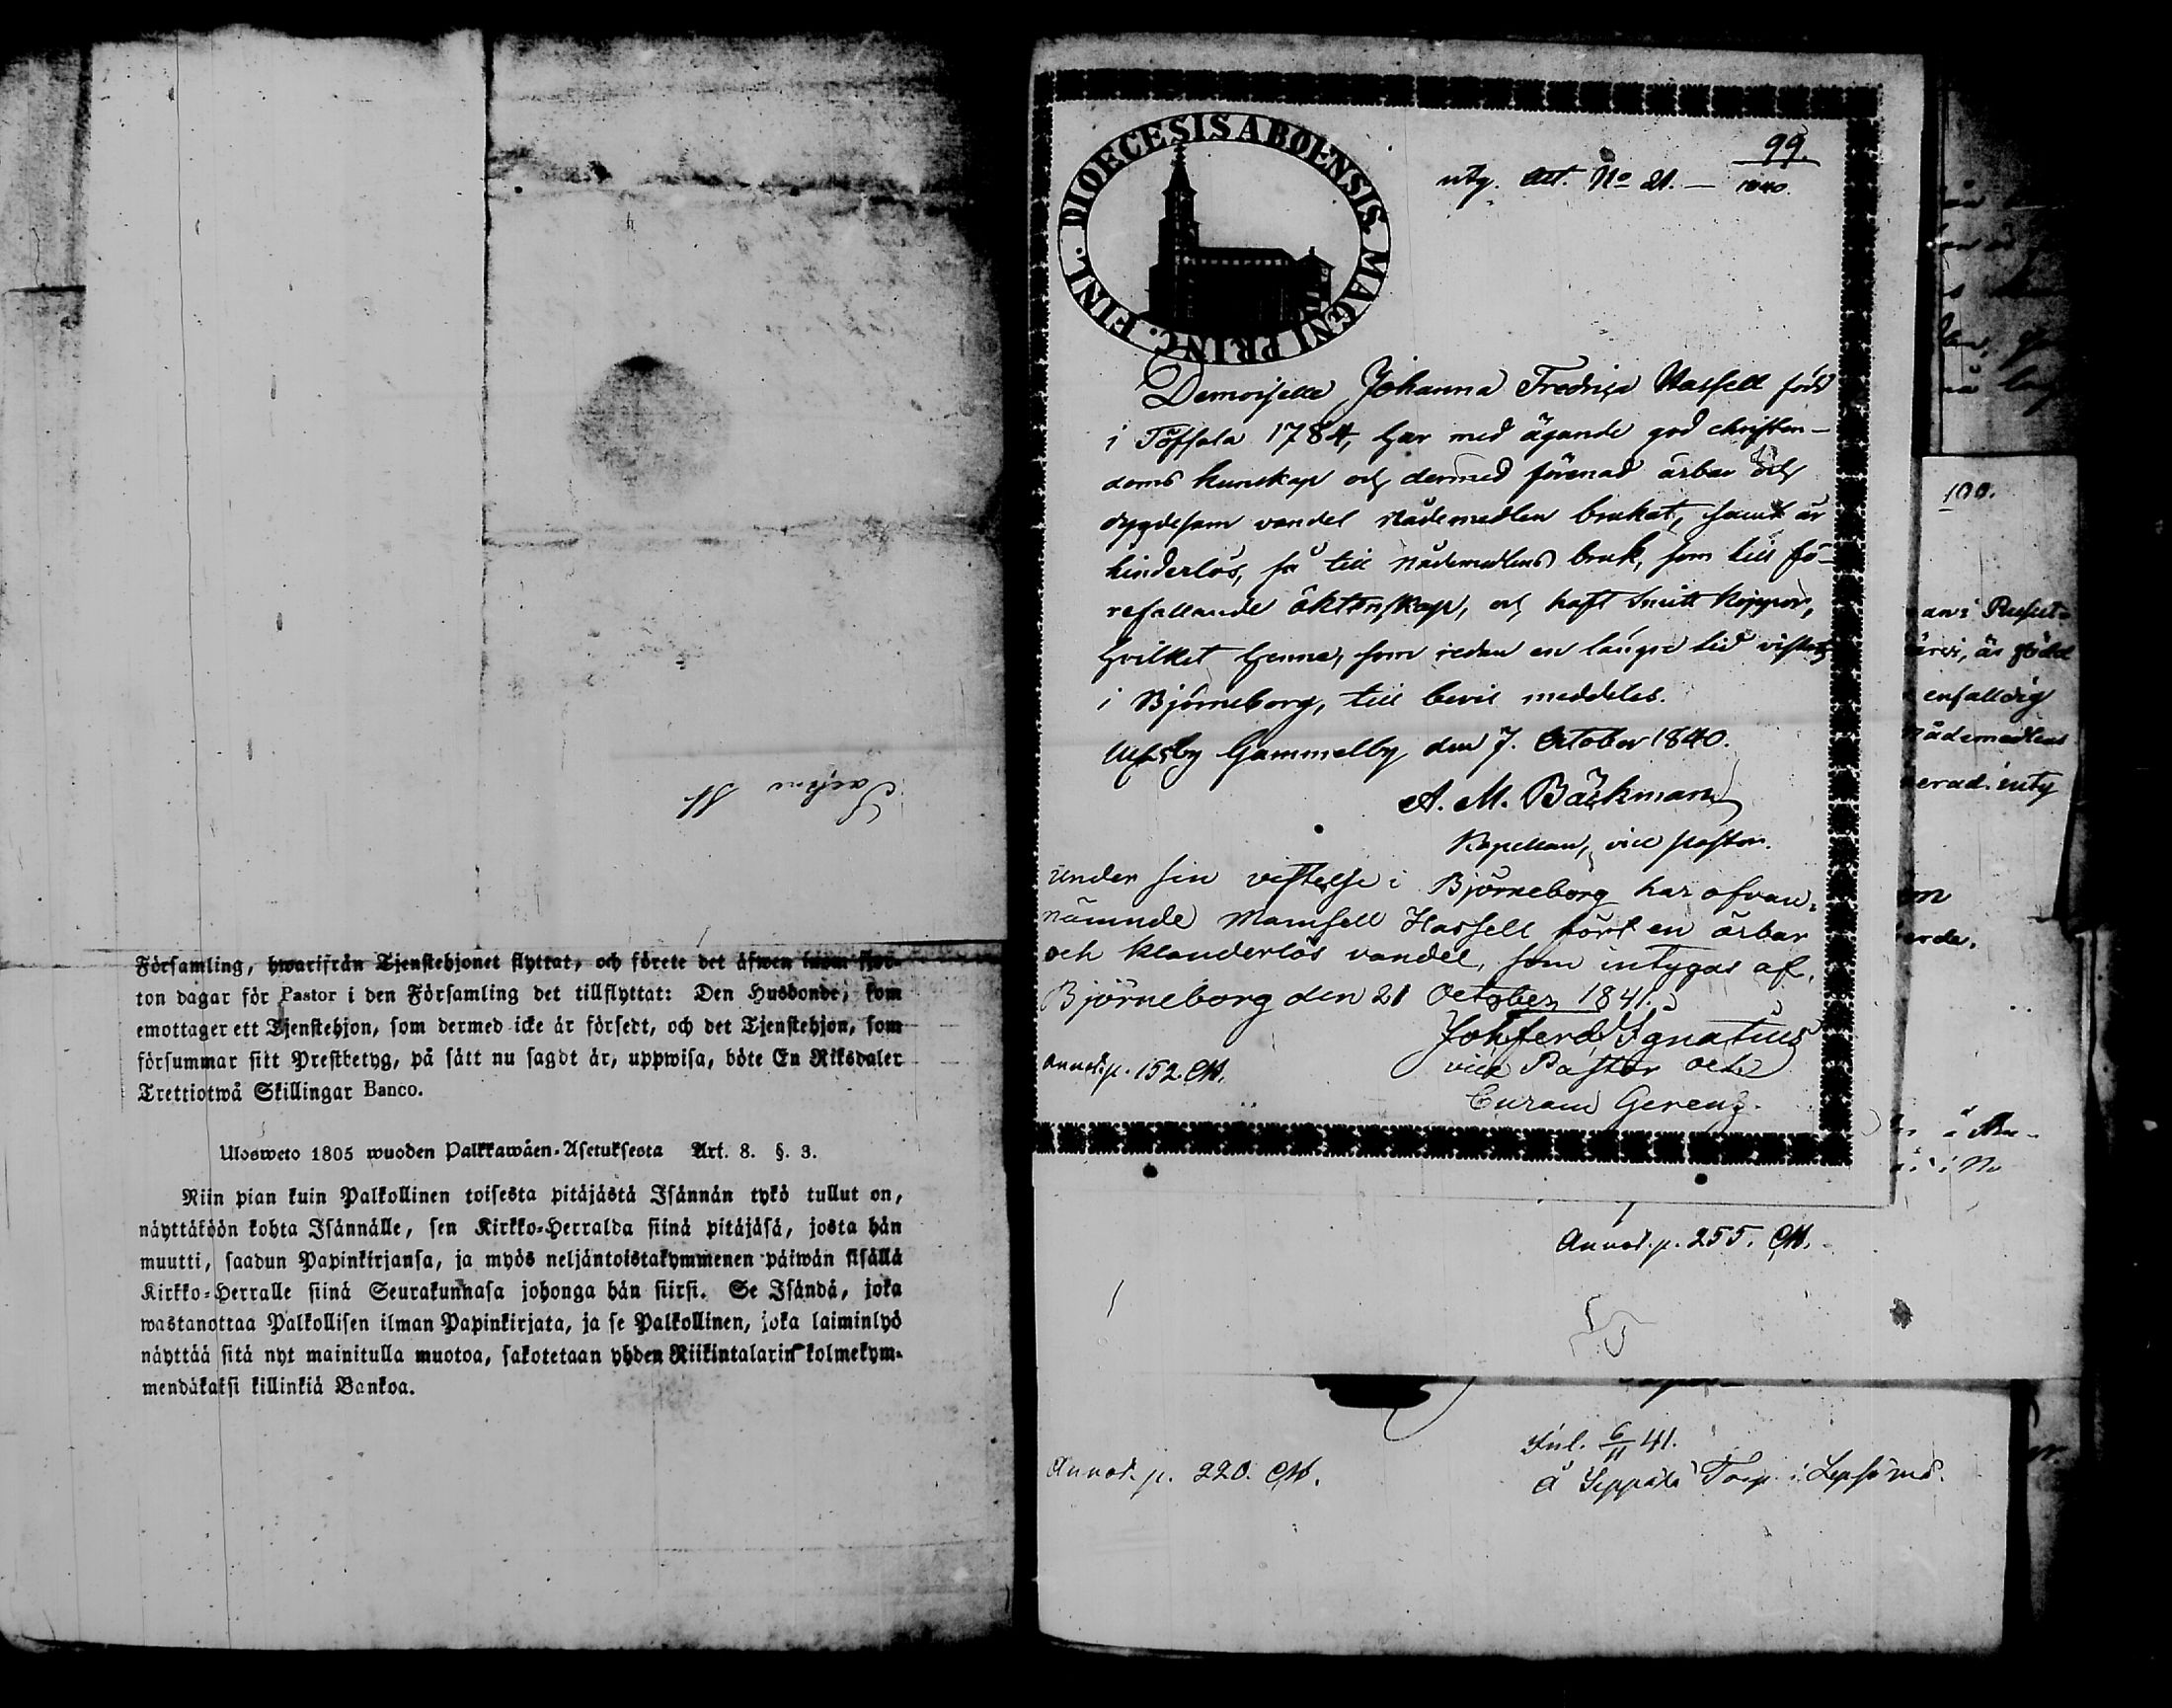 Församling, hwarifrån Tjenstehjonet flyttat, och förete det äfwen inom fjor-
ton dagar för Pastor i den Församling det tillflyttat: Den Husbonde, som
emottager ett Tjenstehjon, som dermed icke är försedt, och det Tjenstehjon, som
försummar sitt Prestbetyg, på sätt nu sagdt är, uppwisa, böte En Riksdaler
Trettiotwå Skillingar Banco.
Ulosweto 1805 wuoden Palkkawäen-Asetuksesta Art. 8. §. 3.
Niin pian kuin Palkollinen toisesta pitäjästä Isännän tykö tullut on,
näyttäköön kohta Isännälle, sen Kirkko-Herralda siinä pitäjäsä, josta hän
muutti, saadun Papinkirjansa, ja myös neljäntoistakymmenen päiwän sisällä
Kirkko-Herralle siinä Seurakunnasa johonga hän siirsi. Se Isändä, joka
wastanottaa Palkollisen ilman Papinkirjata, ja se Palkollinen, joka laiminlyö
näyttää sitä nyt mainitulla muotoa, sakotetaan yhden Riikintalarin kolmekym-
mendäkaksi killinkiä Bankoa.
DIOECESIS ABOENSIS. MAGNI PRINC. FINL.
99.
utg. Att. No 21. — 1840.
Demoiselle Johanna Fredrica Hassell född
i Töffsala 1784, har med ägande god christen-
doms kunskap och dermed förenad ärbar och
dygdesam vandel nådemedlen brukat, samt är
hinderlös, så till nådemedlens bruk, som till fö-
refallande äktenskap, och haft Smitt koppor,
hvilket henne, som redan en längre tid vistats
i Björneborg, till bevis meddeles.
Ulfsby Gammelby den 7. October 1840.
A. M. Bäckman
Kapellan, vice pastor.
Under sin vistelse i Björneborg har ofvan-
nämnde Mamsell Hassell fört en ärbar
och klanderlös vandel, som intygas af,
Björneborg den 21 October 1841.
Joh Ferd Ignatius
vice Pastor och
Curam Gerens.
Annot. p. 152. CM.
100.
enfalldig
nådemedlens
Annot. p. 255. CM.
Annot. p. 220. CM.
Inl. 6/11 41.
å Seppälä Torp i